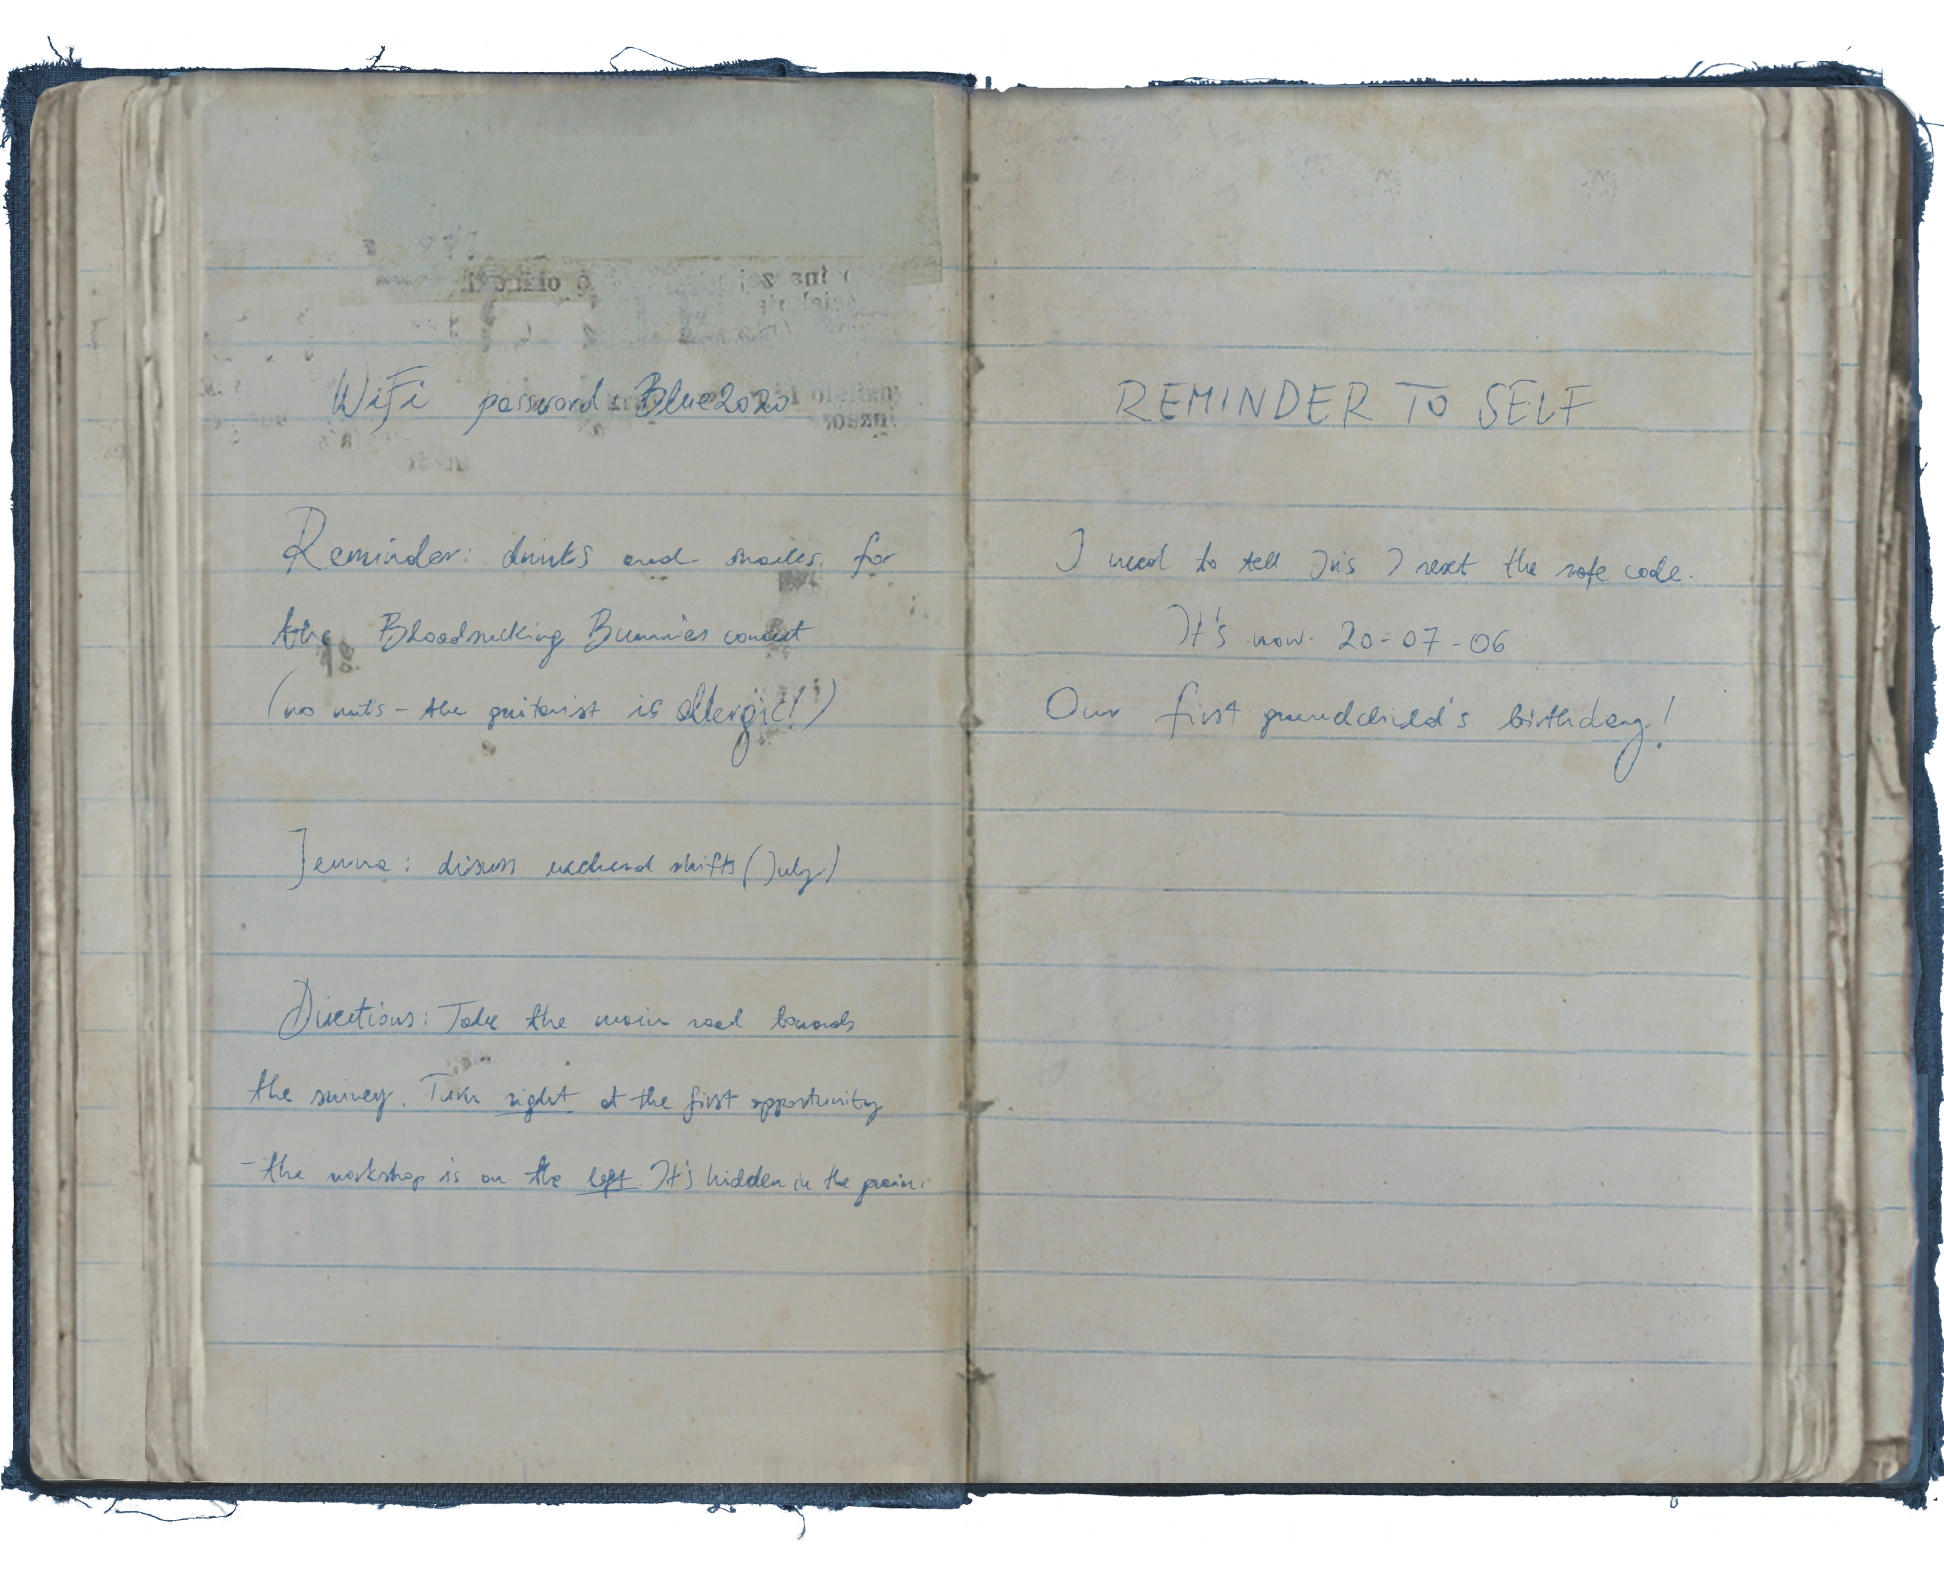 WiFi password: Blue2020
Reminder: drinks and snacks for
the Bloodsucking Bunnies concert
(no nuts - the guitarist is allergic!)
Jenna: discuss weekend shifts (July)
Directions: Take the main road towards
the survey. Turn right at the first opportunity
- the workshop is on the left. It's hidden in the
REMINDER TO SELF
I need to tell Iris I reset the safe code.
It's now 20-07-06
Our first grandchild's birthday!